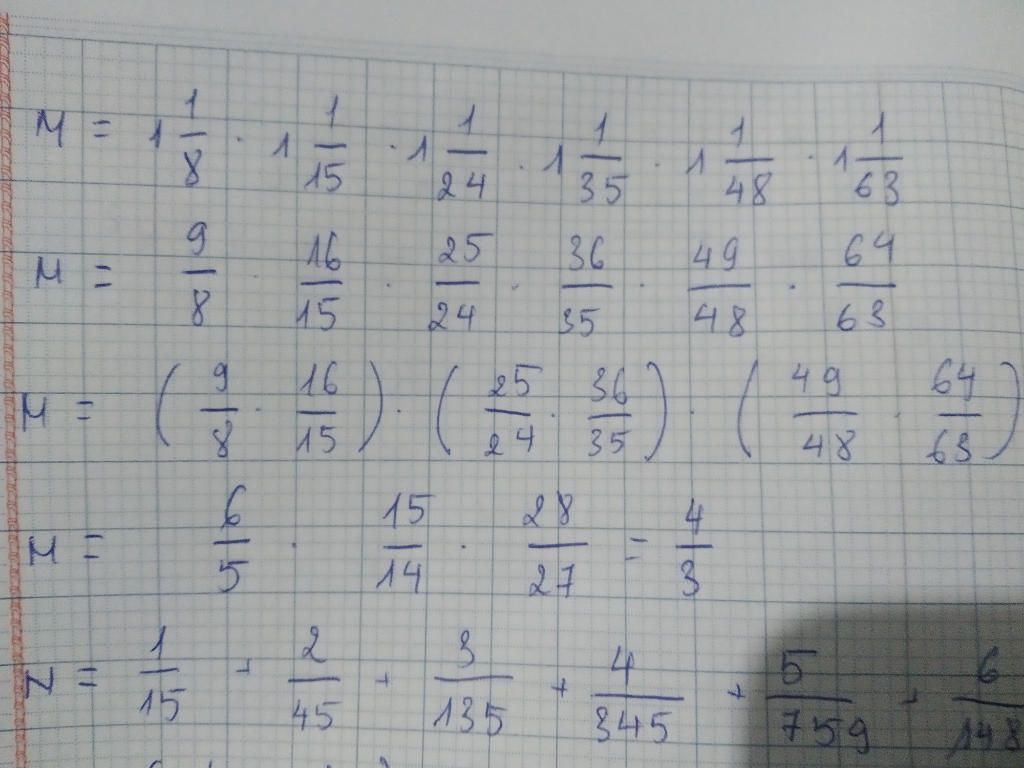 M = 1 1/8 · 1 1/15 · 1 1/24 · 1 1/35 · 1 1/48 · 1 1/63
M = 9/8 · 16/15 · 25/24 · 36/35 · 49/48 · 64/63
M = (9/8 · 16/15) · (25/24 · 36/35) · (49/48 · 64/63)
M = 6/5 · 15/14 · 28/27 = 4/3
N = 1/15 + 2/45 + 3/135 + 4/345 + 5/759 + 6/148